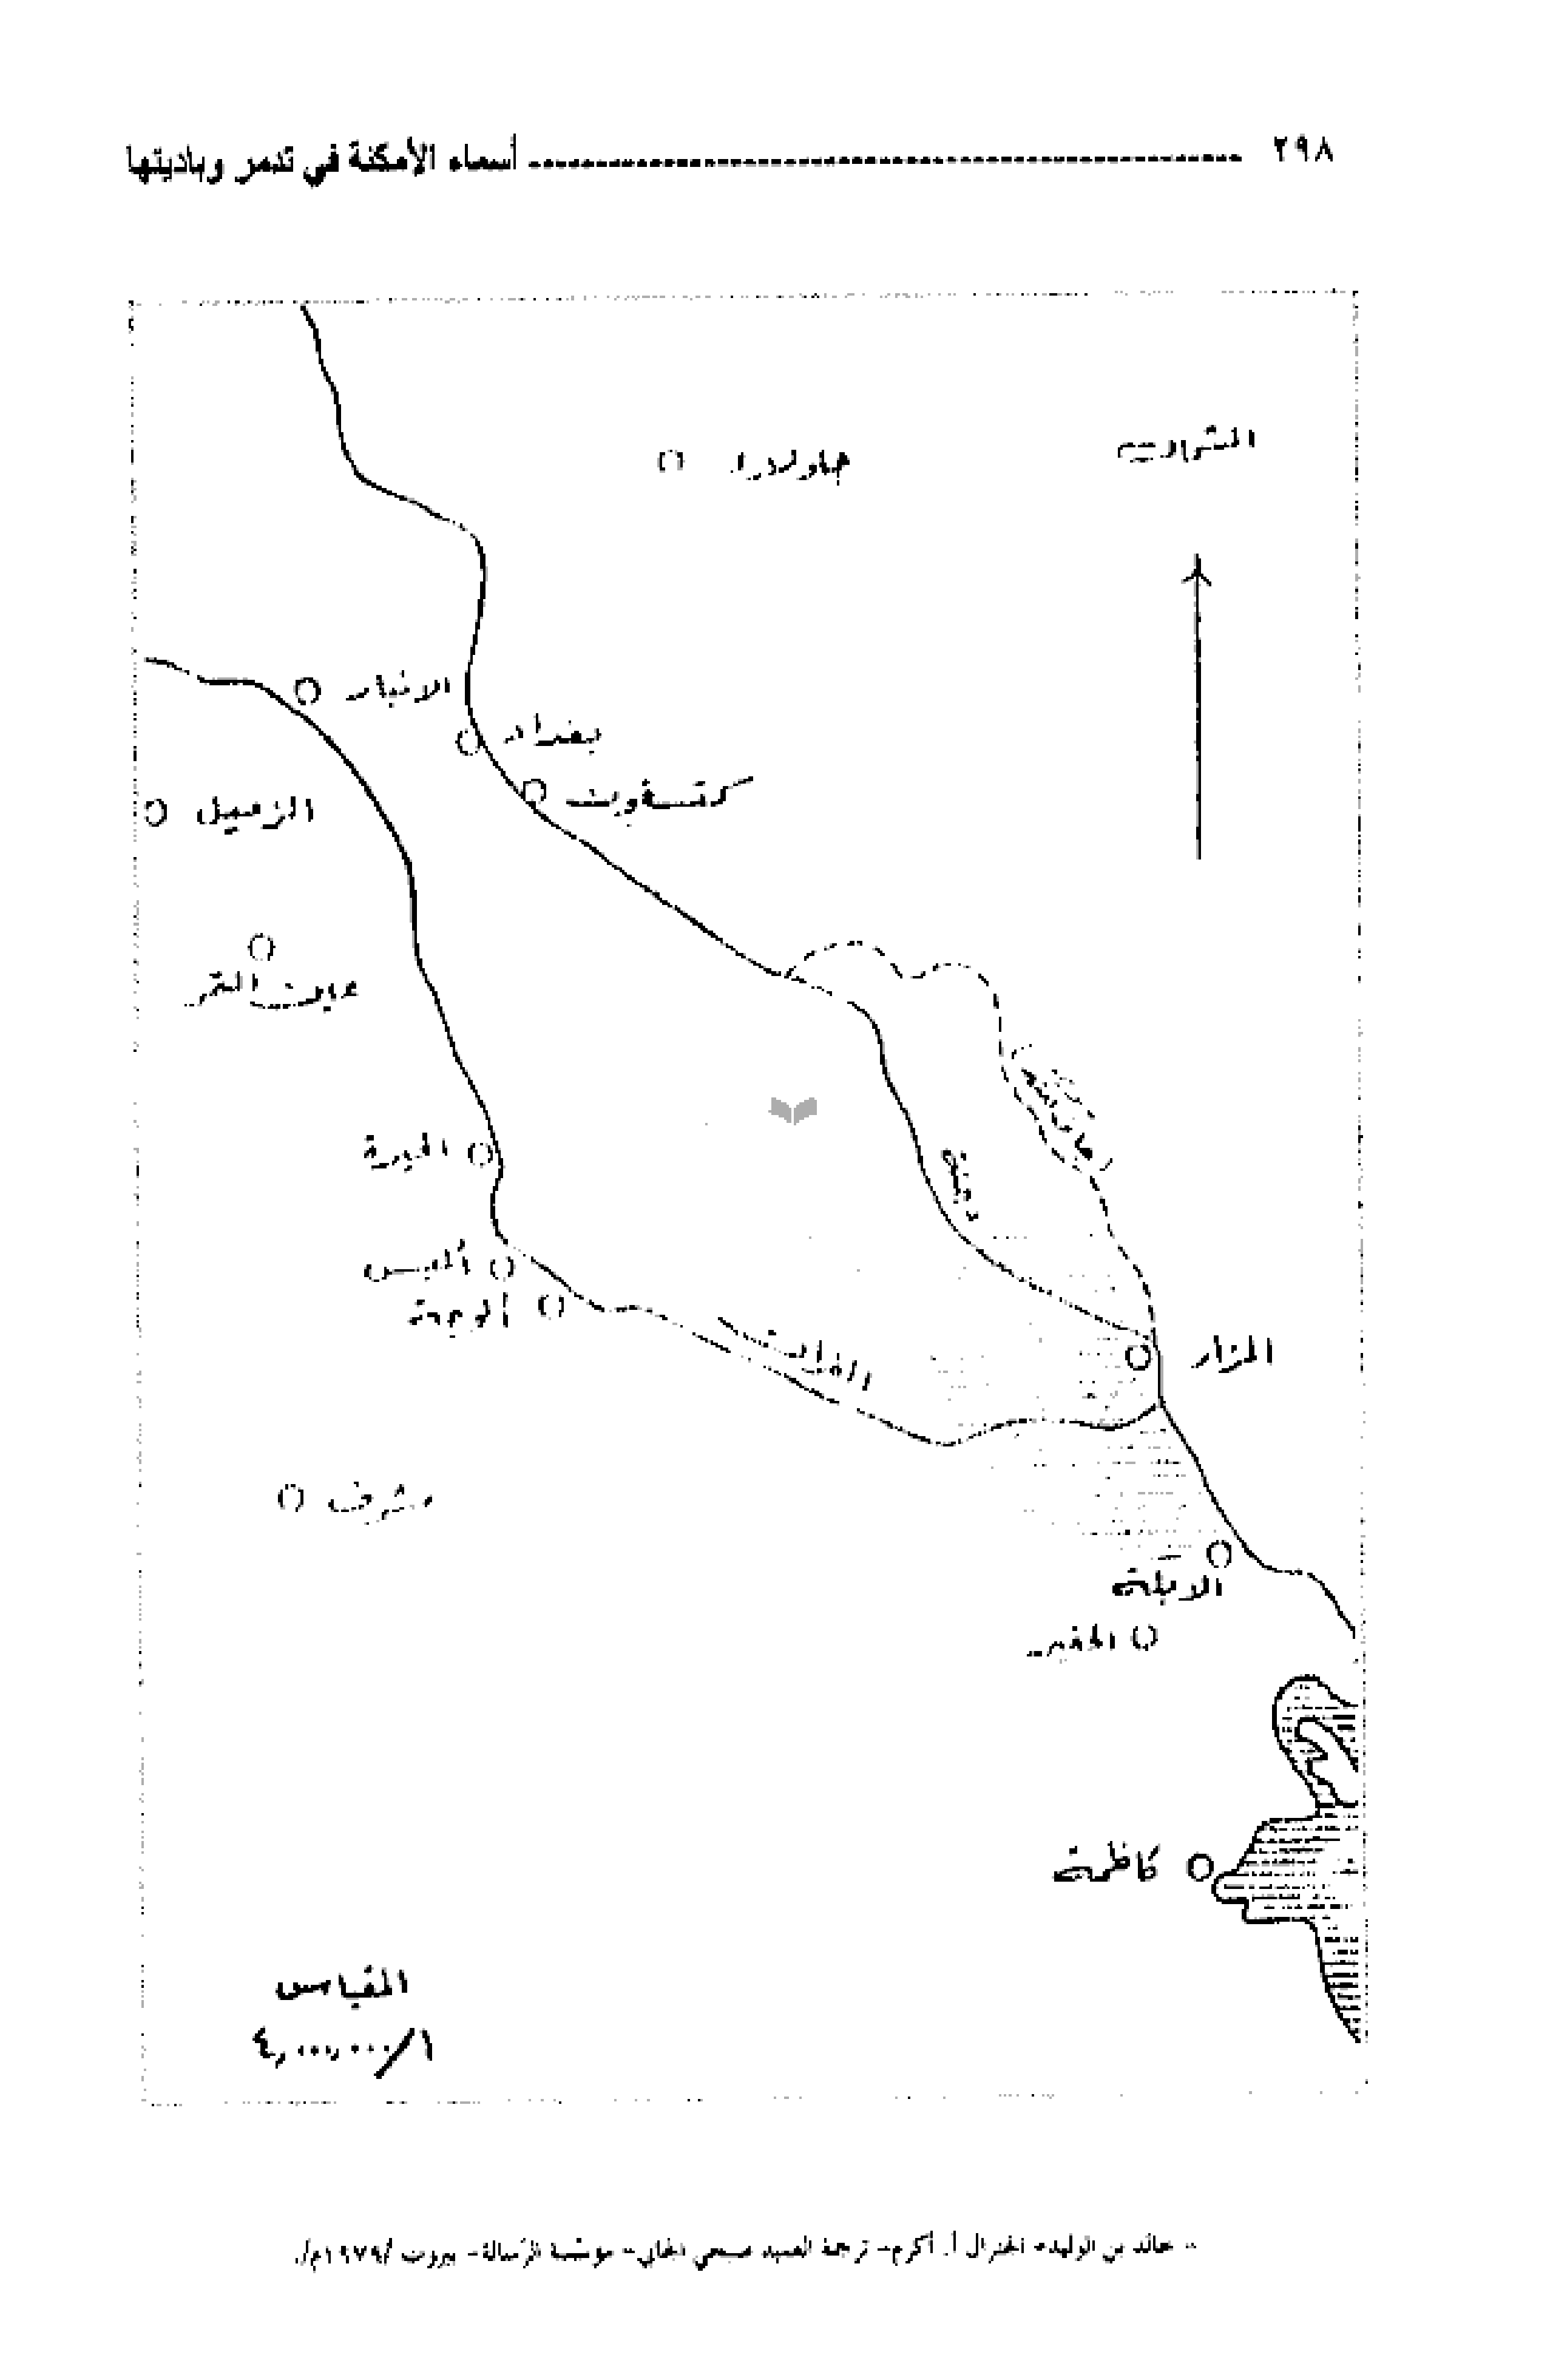 ٢٩٨ أسماء الأمكنة في تدمر وباديتها
الشمال
جلولاء
الانبار
بغداد
كتسفون
الزميل
عين التمر
دجلة
الحيرة
أليس
الفرات
المزار
شرف
الابلة
الحفير
كاظمة
المقياس
٤,٠٠٠,٠٠٠/١
خالد بن الوليد- الجنرال أ. أكرم- ترجمة العميد صبحي الجابي- مؤسسة الرسالة- بيروت /١٩٧٩م/.